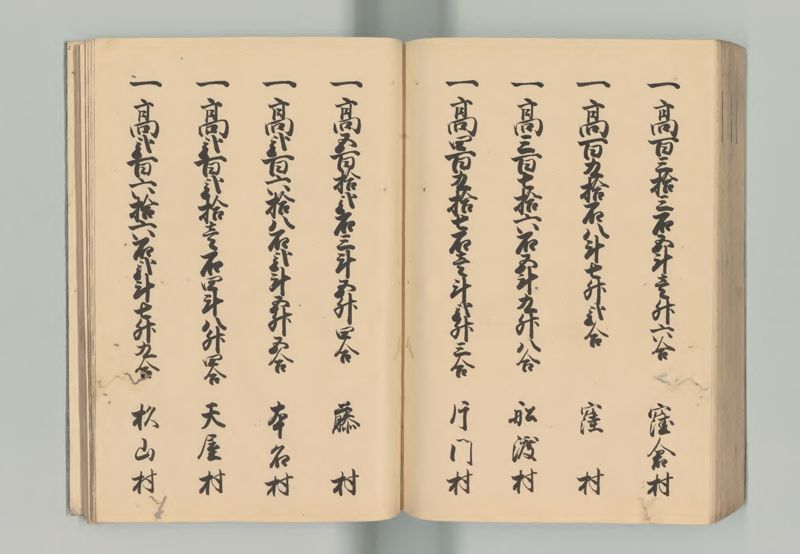 一高百三拾三石五斗壱升六合 窪倉村
一高百九拾石八斗七升弐合 窪村
一高三百七拾六石五斗九升八合 舩渡村
一高四百九拾七石壱斗弐升三合 片門村
一高五百拾弐石三斗五升四合 藤村
一高弐百六拾八石弐斗五升五合 本名村
一高弐百弐拾壱石四斗八升四合 天屋村
一高弐百六拾六石弐斗七升九合 杉山村